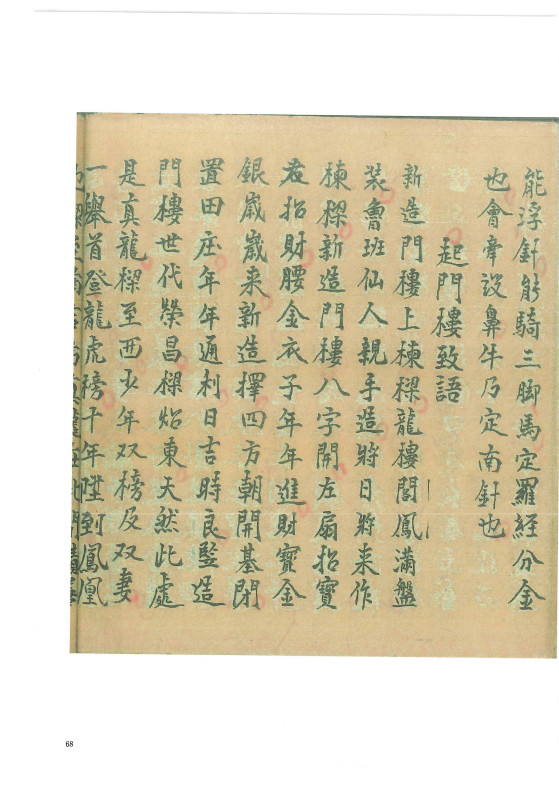 能浮釘能騎三脚馬定羅經分金
也會牵設鼻牛乃定南針也
起門樓致語
新造門樓上棟樑龍樓閣鳳滿盤
装魯班仙人親手造将日将来作
棟樑新造門樓八字開左扇招寳
君招財腰金衣子年年進財寳金
銀歳歳来新造擇四方朝開基閉
置田庄年年通利日吉時良竪造
門樓世代榮昌樑焰東天然此處
是真龍樑至西少年双榜及双妻
一舉首登龍虎榜十年𨀉到鳳凰
68